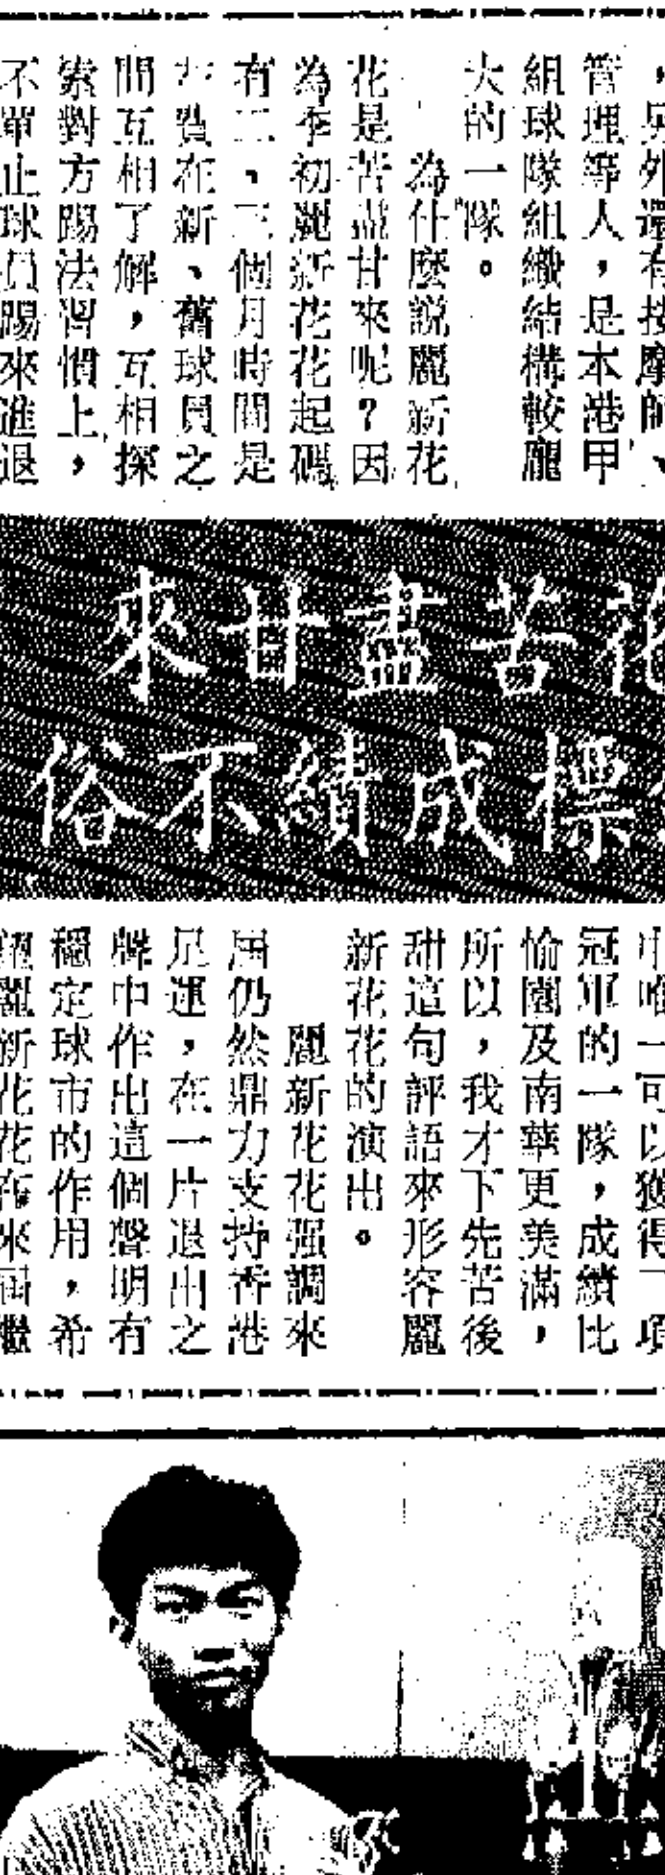 ，另外還有按摩師、
管理等人，是本港甲
組球隊組織結構較龐
大的一隊。
為什麼說麗新花
花是苦盡甘來呢？因
為季初麗新花花起碼
有二、三個月時間是
花費在新、舊球員之
間互相了解，互相探
索對方踢法習慣上，
不單止球員踢來進退
花苦盡甘來
標成績不俗
中唯一可以獲得一項
冠軍的一隊，成績比
愉園及南華更美滿，
所以，我才下先苦後
甜這句評語來形容麗
新花花的演出。
麗新花花强調來
屆仍然鼎力支持香港
足運，在一片退出之
聲中作出這個聲明有
穩定球市的作用，希
望麗新花花在來屆繼